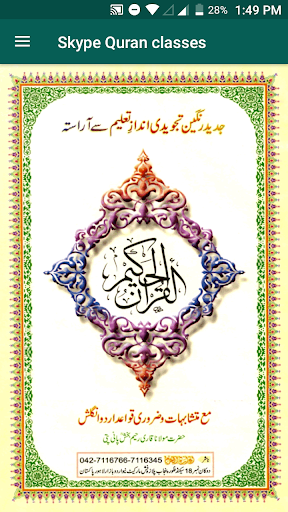 28% 1:49 PM
Skype Quran classes
جدید رنگین تجویدی اندازِ تعلیم سے آراستہ
القرآن الحکیم
مع متشابہات و ضروری قواعد اردو انگلش
حضرت مولانا قاری رحیم بخش پانی پتی
042-7116766-7116345